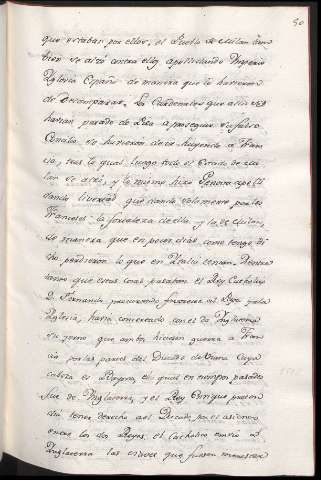 50
que estaban por ellos, el Pueblo de Milan tam
bien se alzó contra ellos apellidando Imperio
Iglesia España de manera que le hubieron
de Desamparar. Los Cardenales que alli se
havian pasado de Pisa a proseguir su falso
Concilio se hubieron de ir huyendo a Fran
cia, tras lo qual luego todo el Estado de Mi
lan se alzó, y lo mismo hizo Genova apelli
dando livertad quedando solamente por los
Franceses la fortaleza de ella y la de Milan,
de manera que en pocos dias como tengo di
cho perdieron lo que en Italia tenian. Dentro
tanto que estas cosas pasaban el Rey Catholico
D. Fernando procurando favorecer al Papa y a la
Iglesia, havia concertado con el de Inglaterra
su yerno que ambos hiciesen guerra a Fran
cia por las partes del Ducado de Guiena cuya
cabeza es Bayona, el qual en tiempos pasados
fue de Inglaterra, y el Rey Enrique preten
dia tener derecho a el Ducado, por el asiento
entre los dos Reyes el Catholico embió a
Inglaterra las naves que fueron menester